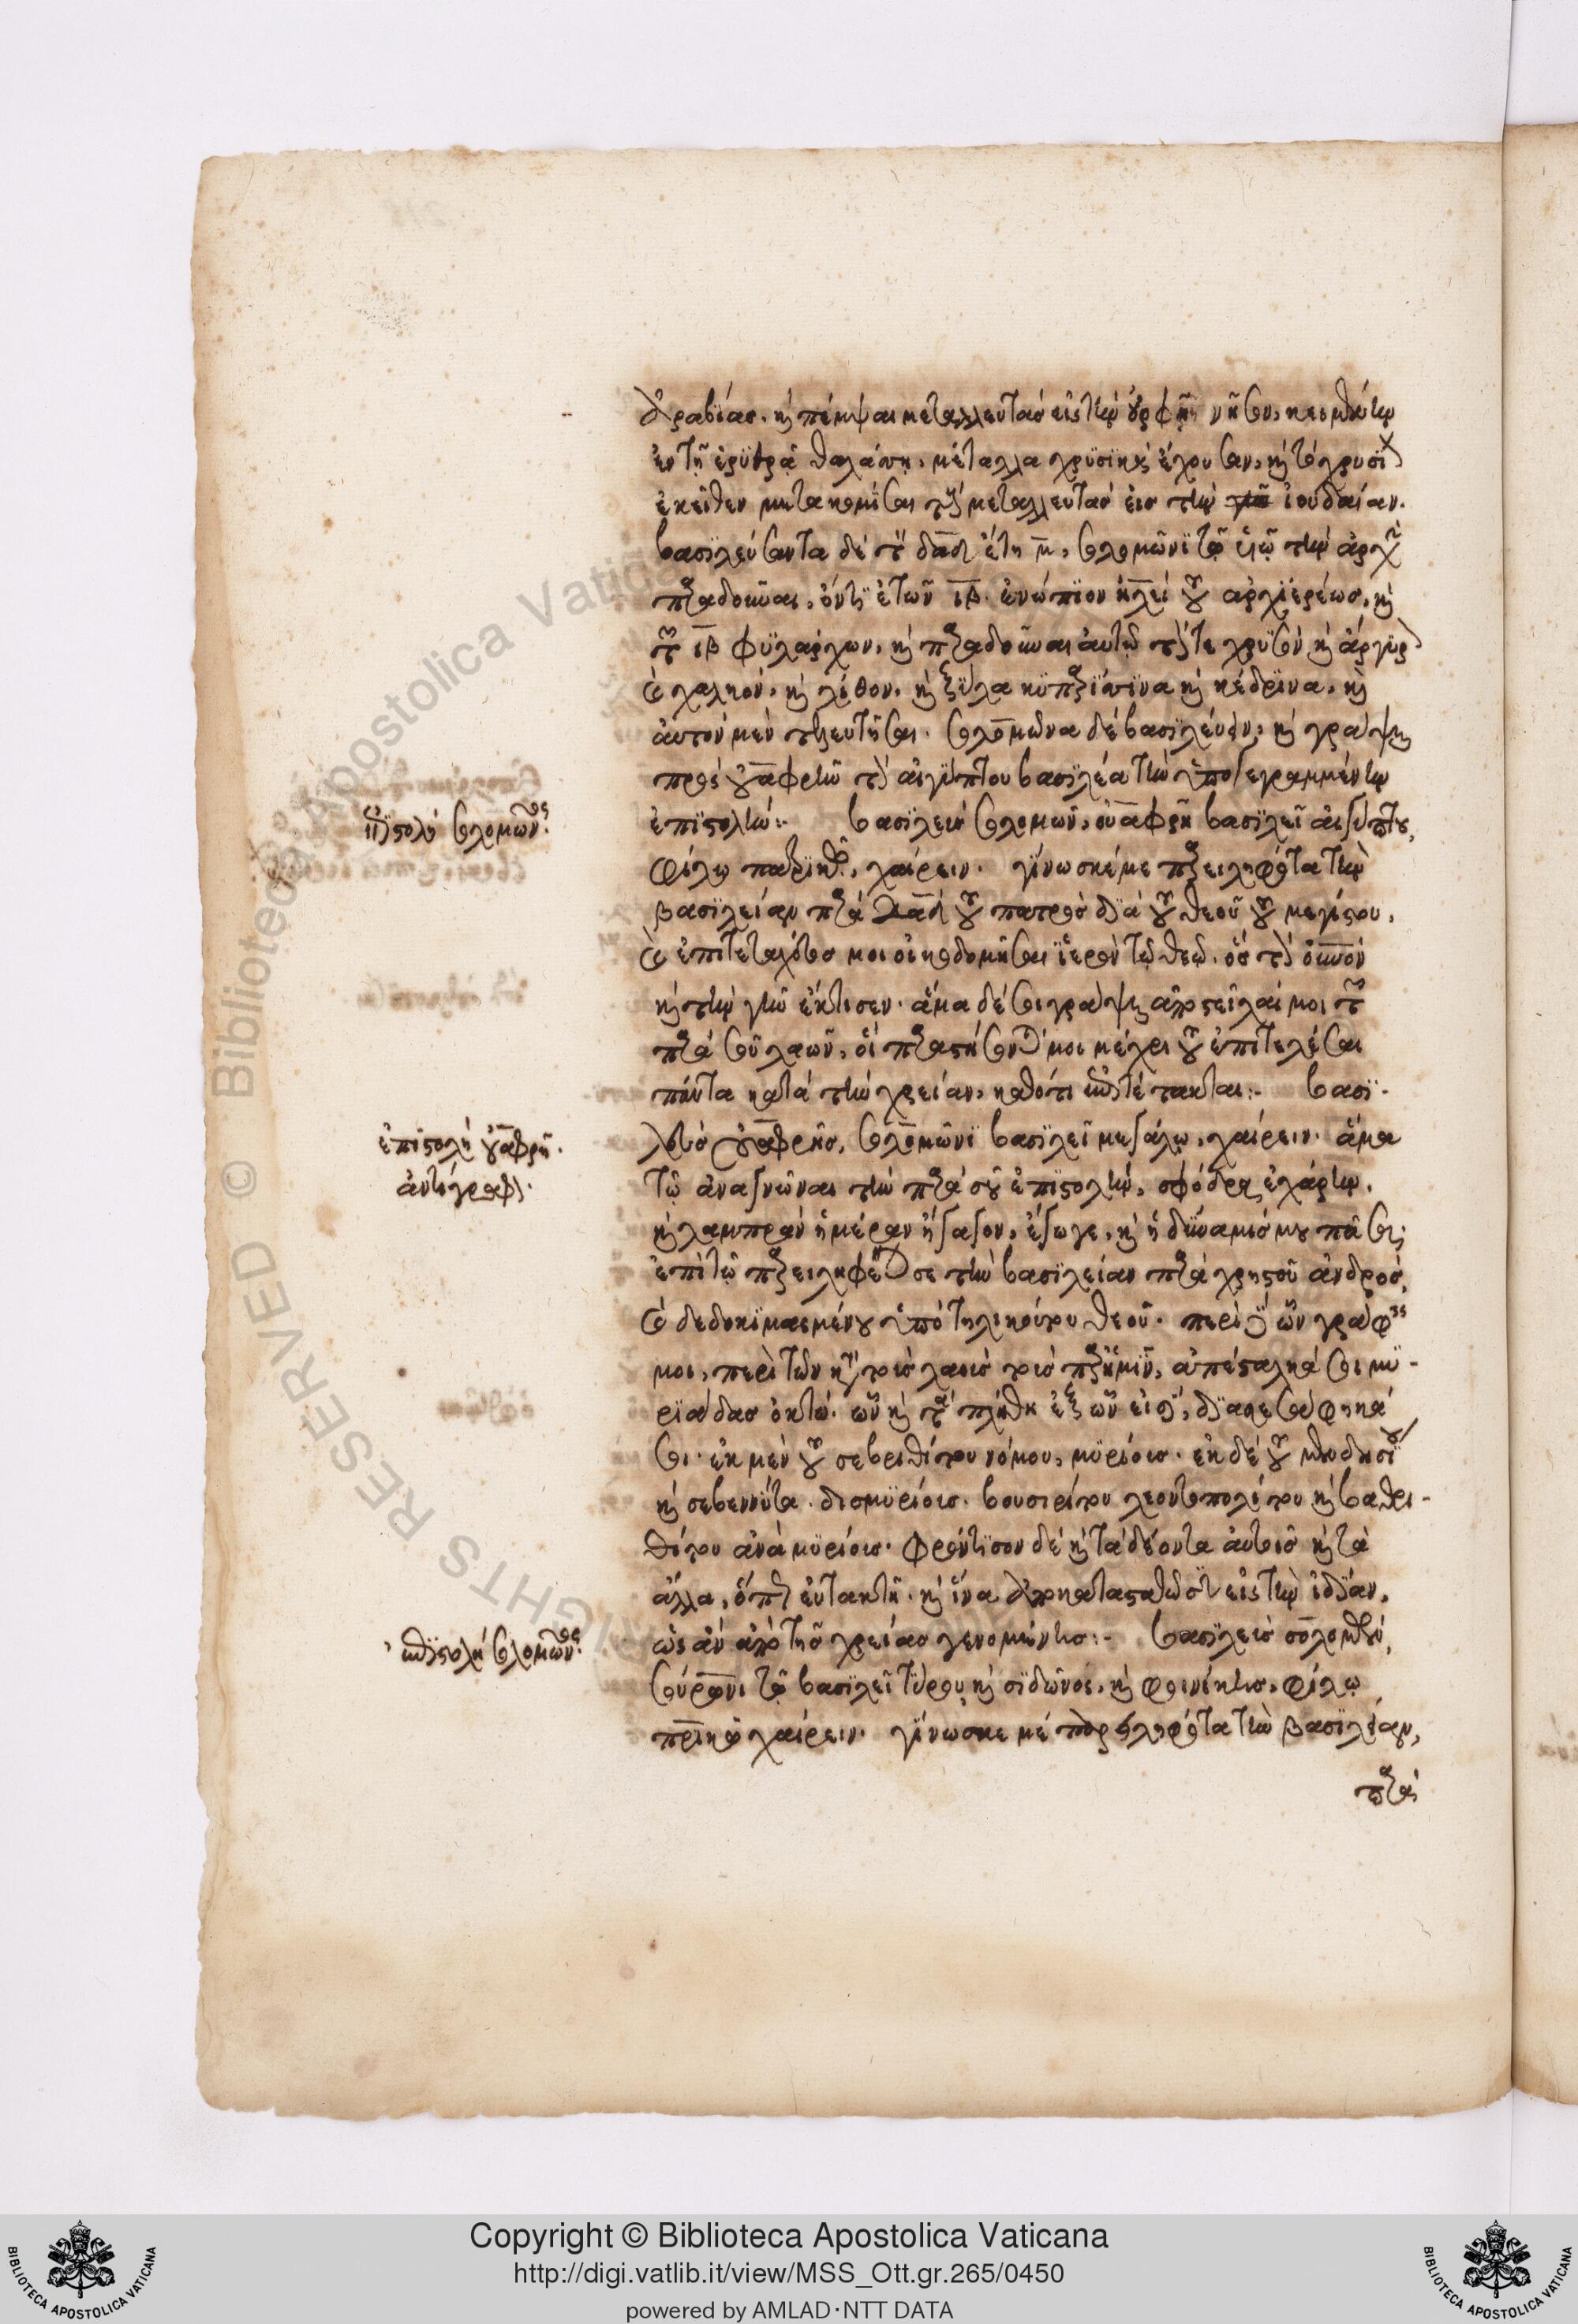 Ἀραβίας. καὶ πέμψαι μεταλλευτὰς εἰς τὴν οὐρφῆ νῆσον, κειμένην
ἐν τῇ ἐρυθρᾷ θαλάσσῃ, μέταλλα χρυσικὰ ἔχουσαν, καὶ τὸ χρυσίον
ἐκεῖθεν μετακομίσαι τοὺς μεταλλευτὰς εἰς τὴν ἰουδαίαν.
βασιλεύσαντα δὲ τὸν δαδ ἔτη μ, σολομῶνι τῷ υἱῷ τὴν ἀρχὴν
παραδοῦναι, ὄντι ἐτῶν ιβ. ἐνώπιον ἠλεὶ τοῦ ἀρχιερέως, καὶ
τῶν ιβ φυλάρχων, καὶ παραδοῦναι αὐτῷ τόν τε χρυσὸν καὶ ἄργυρον
καὶ χαλκὸν, καὶ λίθον, καὶ ξύλα κυπαρίσσινα καὶ κέδρινα, καὶ
αὐτὸν μὲν τελευτῆσαι. σολομῶνα δὲ βασιλεύειν, καὶ γράψαι
πρὸς οὐαφρῆν τὸν αἰγύπτου βασιλέα τὴν ὑπογεγραμμένην
ἐπιστολήν:- βασιλεὺς σολομῶν, οὐαφρῇ βασιλεῖ αἰγύπτου,
φίλῳ πατρικῷ, χαίρειν. γίνωσκέ με παρειληφότα τὴν
βασιλείαν παρὰ δαδ τοῦ πατρὸς διὰ τοῦ θεοῦ τοῦ μεγίστου,
καὶ ἐπιτεταχότος μοι οἰκοδομῆσαι ἱερὸν τῷ θεῷ, ὃς τὸν οὐνὸν
καὶ τὴν γῆν ἔκτισεν. ἅμα δέ σοι γράψαι ἀποστεῖλαί μοι τῶν
παρὰ σοῦ λαῶν, οἳ παραστήσονταί μοι μέχρι τοῦ ἐπιτελέσαι
πάντα κατὰ τὴν χρείαν, καθότι ἐπιτέτακται:- βασι-
λεὺς οὐαφρῆς, σολομῶνι βασιλεῖ μεγάλῳ, χαίρειν. ἅμα
τῷ ἀναγνῶναι τὴν παρὰ σοῦ ἐπιστολὴν, σφόδρα ἐχάρην,
καὶ λαμπρὰν ἡμέραν ἤγαγον, ἔγωγε, καὶ ἡ δύναμίς μου πᾶσα,
ἐπὶ τῷ παρειληφέναι σε τὴν βασιλείαν παρὰ χρηστοῦ ἀνδρὸς,
καὶ δεδοκιμασμένου ὑπὸ τηλικούτου θεοῦ. περὶ δὲ ὧν γράφεις
μοι, περὶ τῶν κατὰ τοὺς λαοὺς τοὺς παρ' ἡμῖν, ἀπέσταλκά σοι μυ-
ριάδας ὀκτώ. ὧν καὶ τὰ πλήθη ἐξ ὧν εἰσι, διασεσάφηκά
σοι. ἐκ μὲν τοῦ σεβριθίτου νόμου, μυρίους. ἐκ δὲ τοῦ μενδησίου
καὶ σεβεννύτου δισμυρίους. βουσιρίτου λεοντοπολίτου καὶ ἀθρι-
θίτου ἀνὰ μυρίους. φρόντισον δὲ καὶ τὰ δέοντα αὐτοῖς καὶ τὰ
ἄλλα, ὅπως εὐτακτῇ. καὶ ἵνα ἀποκατασταθῶσιν εἰς τὴν ἰδίαν,
ὡς ἂν ἀπὸ τῆς χρείας γενομένης:- βασιλεὺς σολομῶν,
σούρωνι τῷ βασιλεῖ τύρου καὶ σιδῶνος, καὶ φοινίκης, φίλῳ
πρικῷ χαίρειν. γίνωσκέ με παρειληφότα τὴν βασιλείαν,
παρὰ
ἐπιστολὴ σολομῶνος.
ἐπιστολὴ οὐαφρῆ.
ἀντίγραφος.
ἐπιστολὴ σολομῶνος.
Copyright © Biblioteca Apostolica Vaticana
http://digi.vatlib.it/view/MSS_Ott.gr.265/0450
powered by AMLAD·NTT DATA
BIBLIOTECA APOSTOLICA VATICANA
BIBLIOTECA APOSTOLICA VATICANA